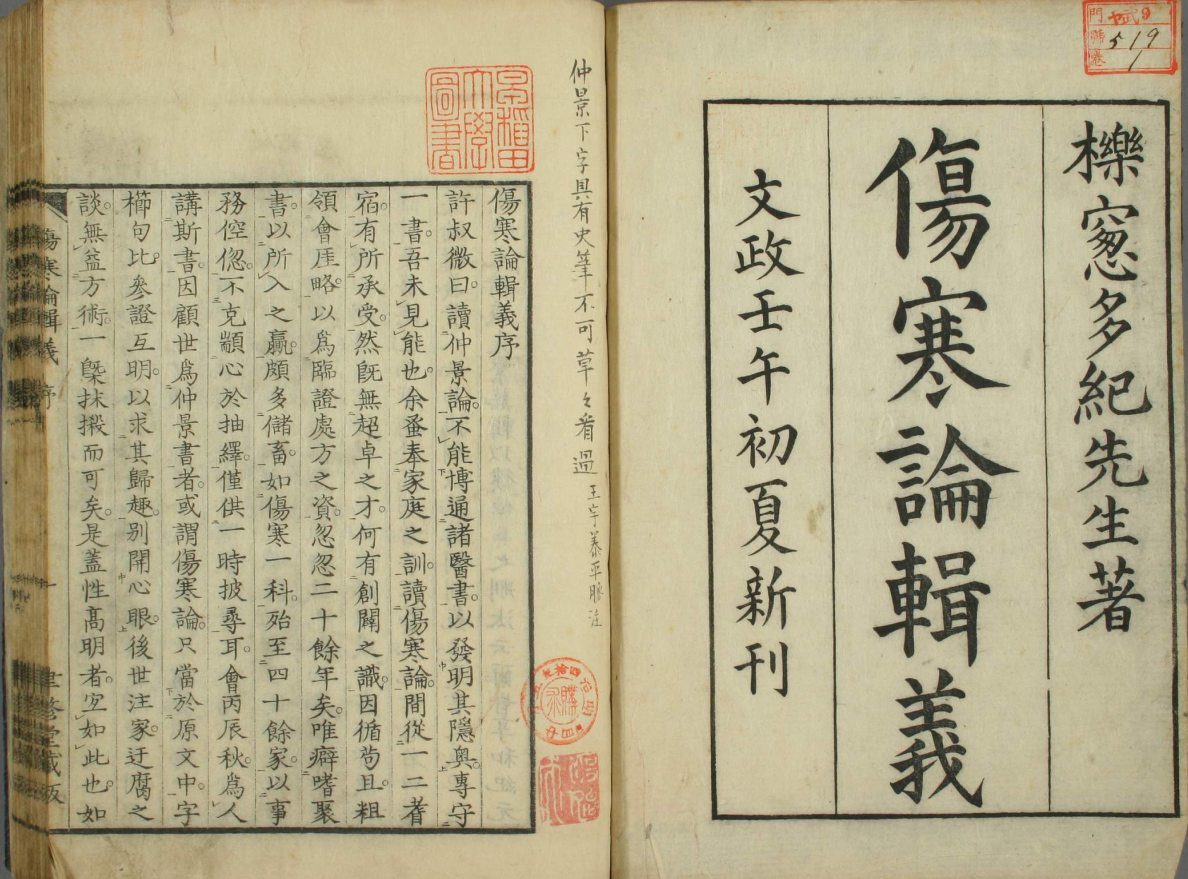 櫟窓多紀先生著
傷寒論輯義
文政壬午初夏新刊
仲景下字具有史筆不可草々看過
傷寒論輯義序
許叔微曰讀仲景論不能博通諸醫書以發明其隱奧專守
一書吾未見能也余蚤奉家庭之訓讀傷寒論間從一二耆
宿有所承受然旣無超卓之才何有創闢之識因循苟且粗
領會厓略以爲臨證處方之資忽忽二十餘年矣唯癖嗜聚
書以所入之贏頗多儲畜如傷寒一科殆至四十餘家以事
務倥偬不克顓心於抽繹僅供一時披尋耳會丙辰秋爲人
講斯書因顧世爲仲景書者或謂傷寒論只當於原文中字
櫛句比參證互明以求其歸趣別開心眼後世注家迂腐之
談無益方術一槩抹摋而可矣是蓋性高明者宜如此也如
傷寒論輯義 序 一 聿修堂藏版
早稲田大學圖書